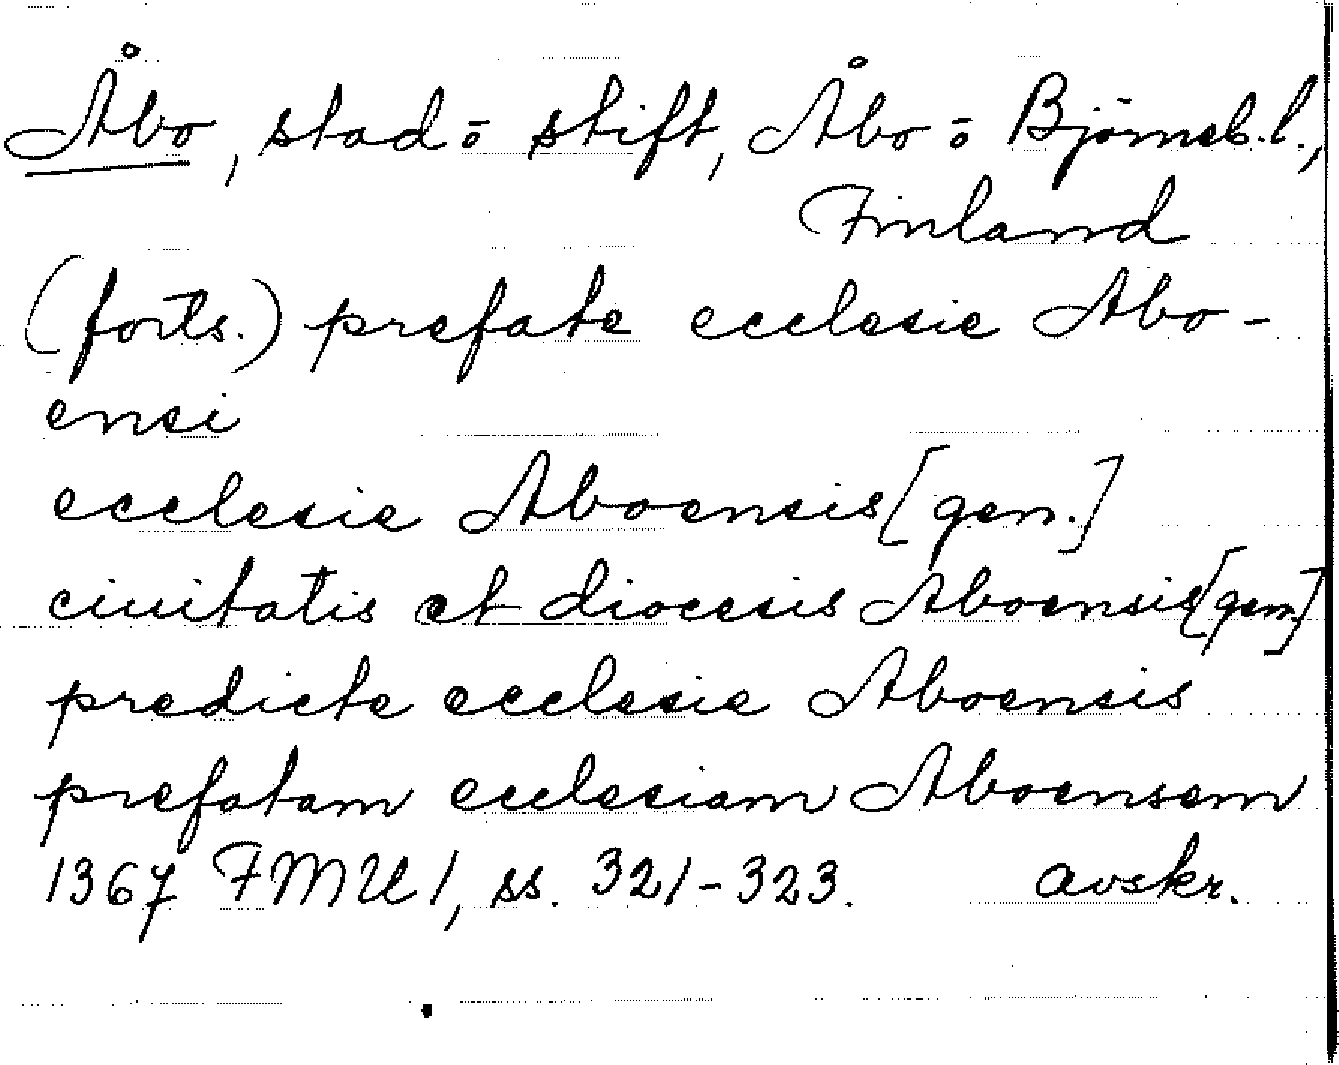 Åbo, stad o. stift, Åbo o. Björneb. l.,
Finland
(forts.) prefate ecclesie Abo-
ensi
ecclesie Aboensis [gen.]
ciuitatis et diocesis Aboensis [gen.]
predicte ecclesie Aboensis
prefatam ecclesiam Aboensem
1367 FMU 1, ss. 321-323. avskr.